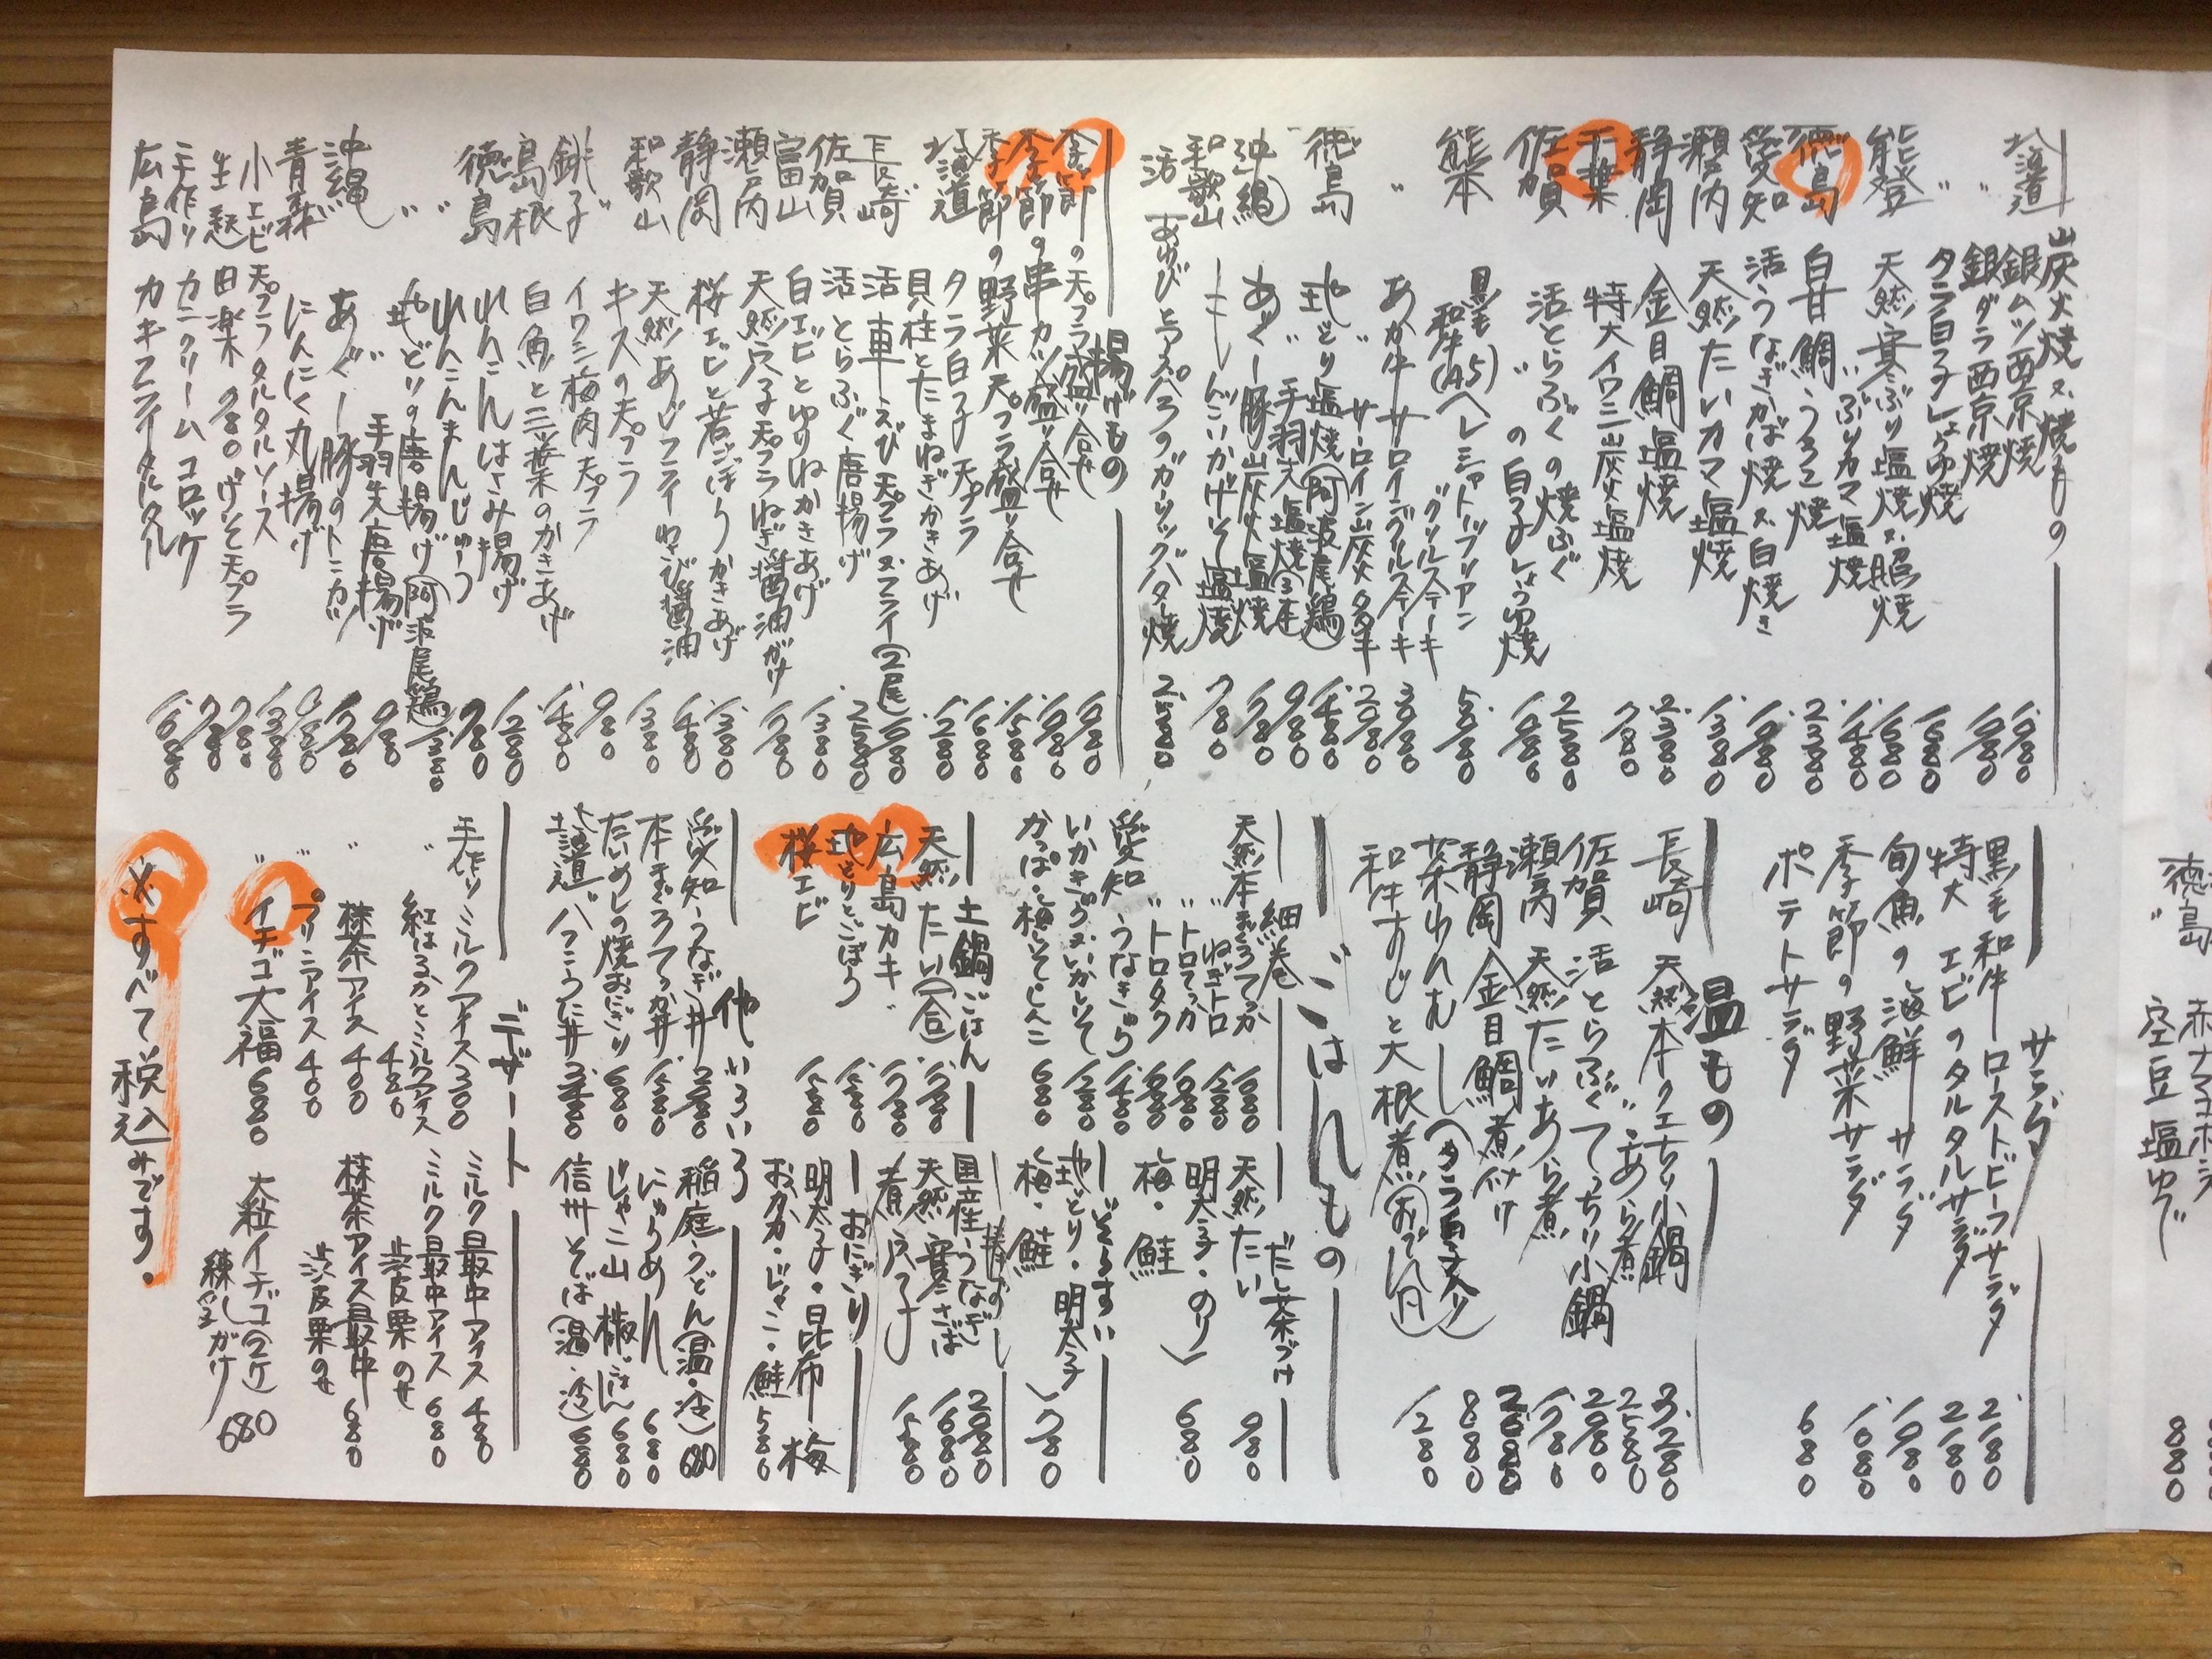 炭火焼又焼もの
北海道 銀ムツ西京焼 1.980
〃 銀ダラ西京焼 1.980
〃 タラ白子しょうゆ焼 1.680
能登 天然寒ぶり塩焼又照焼 1.680
〃 ぶりカマ塩焼 1.480
徳島 白甘鯛うろこ焼 2.380
愛知 活うなぎかば焼又白焼き 1.980
瀬戸内 天然たいカマ塩焼 1.380
静岡 金目鯛塩焼 2.380
千葉 特大イワシ炭火塩焼 780
佐賀 活とらふぐの焼ふぐ 2.580
〃 の白子しょうゆ焼 1.980
熊本 黒毛和牛(A5)ヘレシャトーブリアングリルステーキ 5.980
〃 あか牛サーロイングリルステーキ
〃 サーロイン炭火タタキ
徳島 地どり塩焼(阿波尾鶏) 1.480
〃 手羽先塩焼(3本) 980
沖縄 あぐー豚炭火塩焼
和歌山 しんこいかげそ塩焼 780
活 あわびとアスパラのガーリックバター焼
揚げもの
季節の天プラ盛り合せ
季節の串カツ盛り合せ
季節の野菜天プラ盛り合せ 1.580
北海道 タラ白子天プラ 1.680
貝柱とたまねぎかきあげ 1.280
長崎 活車えび天プラ又フライ(2尾)
佐賀 活とらふぐ唐揚げ 2.580
富山 白エビとゆりねかきあげ 1.380
瀬戸内 天然穴子天プラねぎ醤油がけ
静岡 桜エビと若ごぼうかきあげ 1.380
和歌山 天然あじフライわさび醤油 1.480
〃 キスの天プラ
銚子 イワシ梅肉天プラ 980
島根 白魚と三つ葉のかきあげ 1.480
徳島 れんこんはさみ揚げ 1.280
〃 れんこんまんじゅう 980
〃 地どりの唐揚げ(阿波尾鶏) 1.380
〃 手羽先唐揚げ 980
沖縄 あぐー豚のトンカツ
青森 にんにく丸揚げ
小エビ天プラタルタルソース 1.380
生麩田楽 780 げそ天プラ 780
手作りカニクリームコロッケ
広島 カキフライタルタル 1.680
サラダ
黒毛和牛ローストビーフサラダ 2.180
特大エビのタルタルサラダ 2.180
旬魚の海鮮サラダ 1.980
季節の野菜サラダ 1.080
ポテトサラダ 680
温もの
長崎 天然本クエちり小鍋 3.280
〃 あら煮 2.580
佐賀 活とらふぐてっちり小鍋
瀬戸内 天然たいあら煮
静岡 金目鯛煮付け
茶わんむし(タラ白子入り) 880
和牛すじと大根煮(おでん風) 1.280
ごはんもの
細巻
天然本まぐろてっか
〃 ねぎトロ 1.280
〃 トロてっか
〃 トロタク
愛知 うなきゅう 1.480
いかきゅう又いかしそ 1.280
かっぱ・梅しそ・しんこ 680
だし茶づけ
天然たい 980
明太子・のり
梅・鮭 680
ぞうすい
地どり・明太子
梅・鮭 780
土鍋ごはん
天然たい(一合)
広島 カキ
地どりとごぼう 1.580
桜エビ 1.580
棒ずし
国産うなぎ
天然寒さば 1.680
煮穴子 1.580
おにぎり
明太子・昆布・梅
おかか・じゃこ・鮭 580
他いろいろ
愛知 うなぎ丼
本まぐろてっか丼
たいめしの焼おにぎり 680
北海道 バフンうに丼
稲庭うどん(温・冷) 680
にゅうめん 680
じゃこ山椒ごはん 680
信州そば(温・冷) 680
デザート
手作りミルクアイス 300 ミルク最中アイス 480
〃 紅はるかとミルクアイス 480 ミルク最中アイス渋皮栗のせ 680
〃 抹茶アイス 400 抹茶アイス最中渋皮栗のせ 680
〃 プリンアイス 400
〃 イチゴ大福 680 大粒イチゴ(2ケ)練乳がけ 680
※すべて税込みです。
徳島
〃 空豆塩ゆで 880